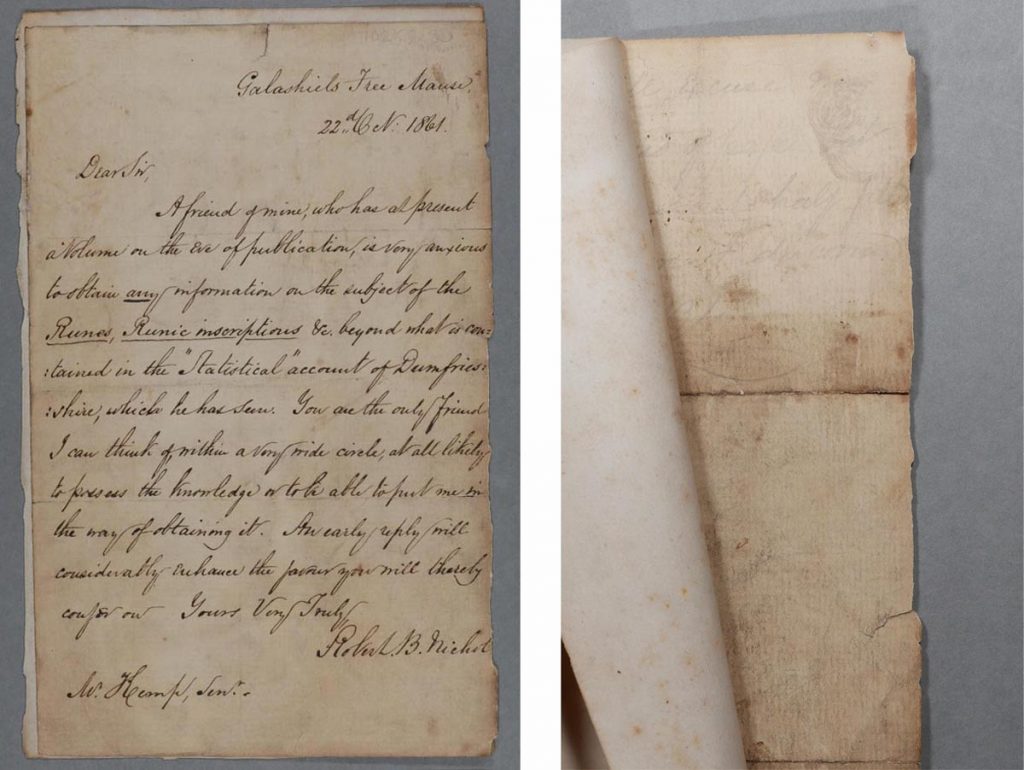 Galashiels Free Manse,
22d Oct. 1861.
Dear Sir,
A friend of mine, who has at present
a volume on the eve of publication, is very anxious
to obtain any information on the subject of the
Runes, Runic inscriptions &c. beyond what is con=
:tained in the "Statistical" account of Dumfries=
:shire, which he has seen. You are the only friend
I can think of, within a very wide circle, at all likely
to possess the knowledge or to be able to put me in
the way of obtaining it. An early reply will
considerably enhance the favour you will thereby
confer on Yours Very Truly,
Robert. B. Nichol
Mr. Kemp, Senr.